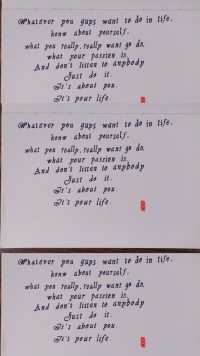 Whatever you guys want to do in life,
know about yourself,
what you really, really want go do,
what your passion is,
And don't listen to anybody
Just do it.
It's about you
It's your life
Whatever you guys want to do in life,
know about yourself,
what you really, really want go do,
what your passion is,
And don't listen to anybody
Just do it.
It's about you
It's your life.
Whatever you guys want to do in life,
know about yourself,
what you really, really want go do,
what your passion is,
And don't listen to anybody
Just do it.
It's about you
It's your life.